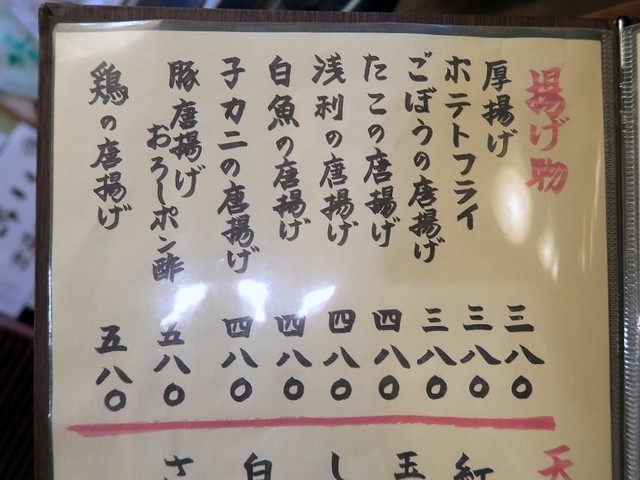 揚げ物
厚揚げ 三八〇
ホテトフライ 三八〇
ごぼうの唐揚げ 三八〇
たこの唐揚げ 四八〇
浅利の唐揚げ 四八〇
白魚の唐揚げ 四八〇
子カニの唐揚げ 四八〇
豚唐揚げ
おろしポン酢 五八〇
鶏の唐揚げ 五八〇
天
紅
玉
し
白
さ